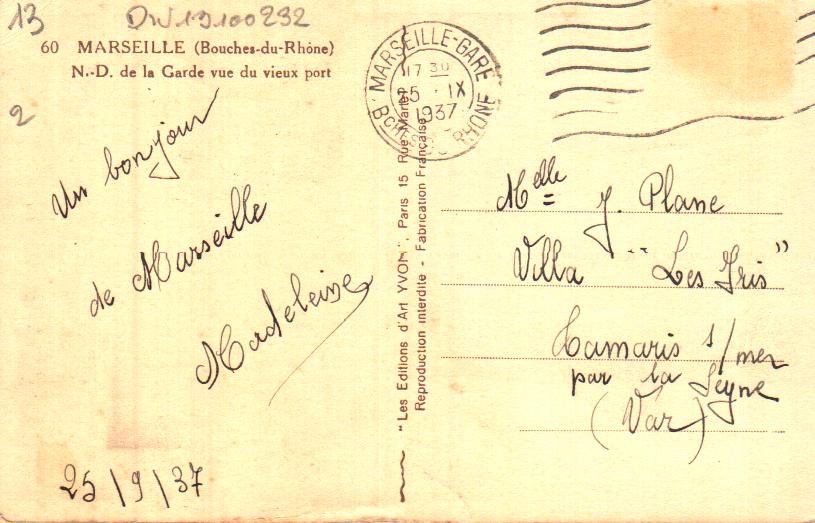 13
DW13100292
60 MARSEILLE (Bouches-du-Rhône)
N.-D. de la Garde vue du vieux port
2
Un bonjour
de Marseille
Madeleine
25/9/37
MARSEILLE-GARE
17 30
25 · IX
1937
RHÔNE
"Les Editions d'Art YVON". Paris 15 Rue Martel
Reproduction interdite - Fabrication Française
Melle J. Plane
Villa "Les Iris"
Tamaris s/mer
par la Seyne
(Var)